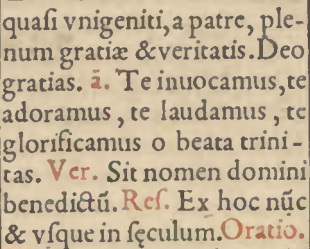 quaſi vnigeniti, a patre, ple-
num gratiæ & veritatis. Deo
gratias. ā. Te inuocamus, te
adoramus, te laudamus, te
glorificamus o beata trini-
tas. Ver. Sit nomen domini
benedictū. Reſ. Ex hoc nūc
& vſque in ſęculum. Oratio.